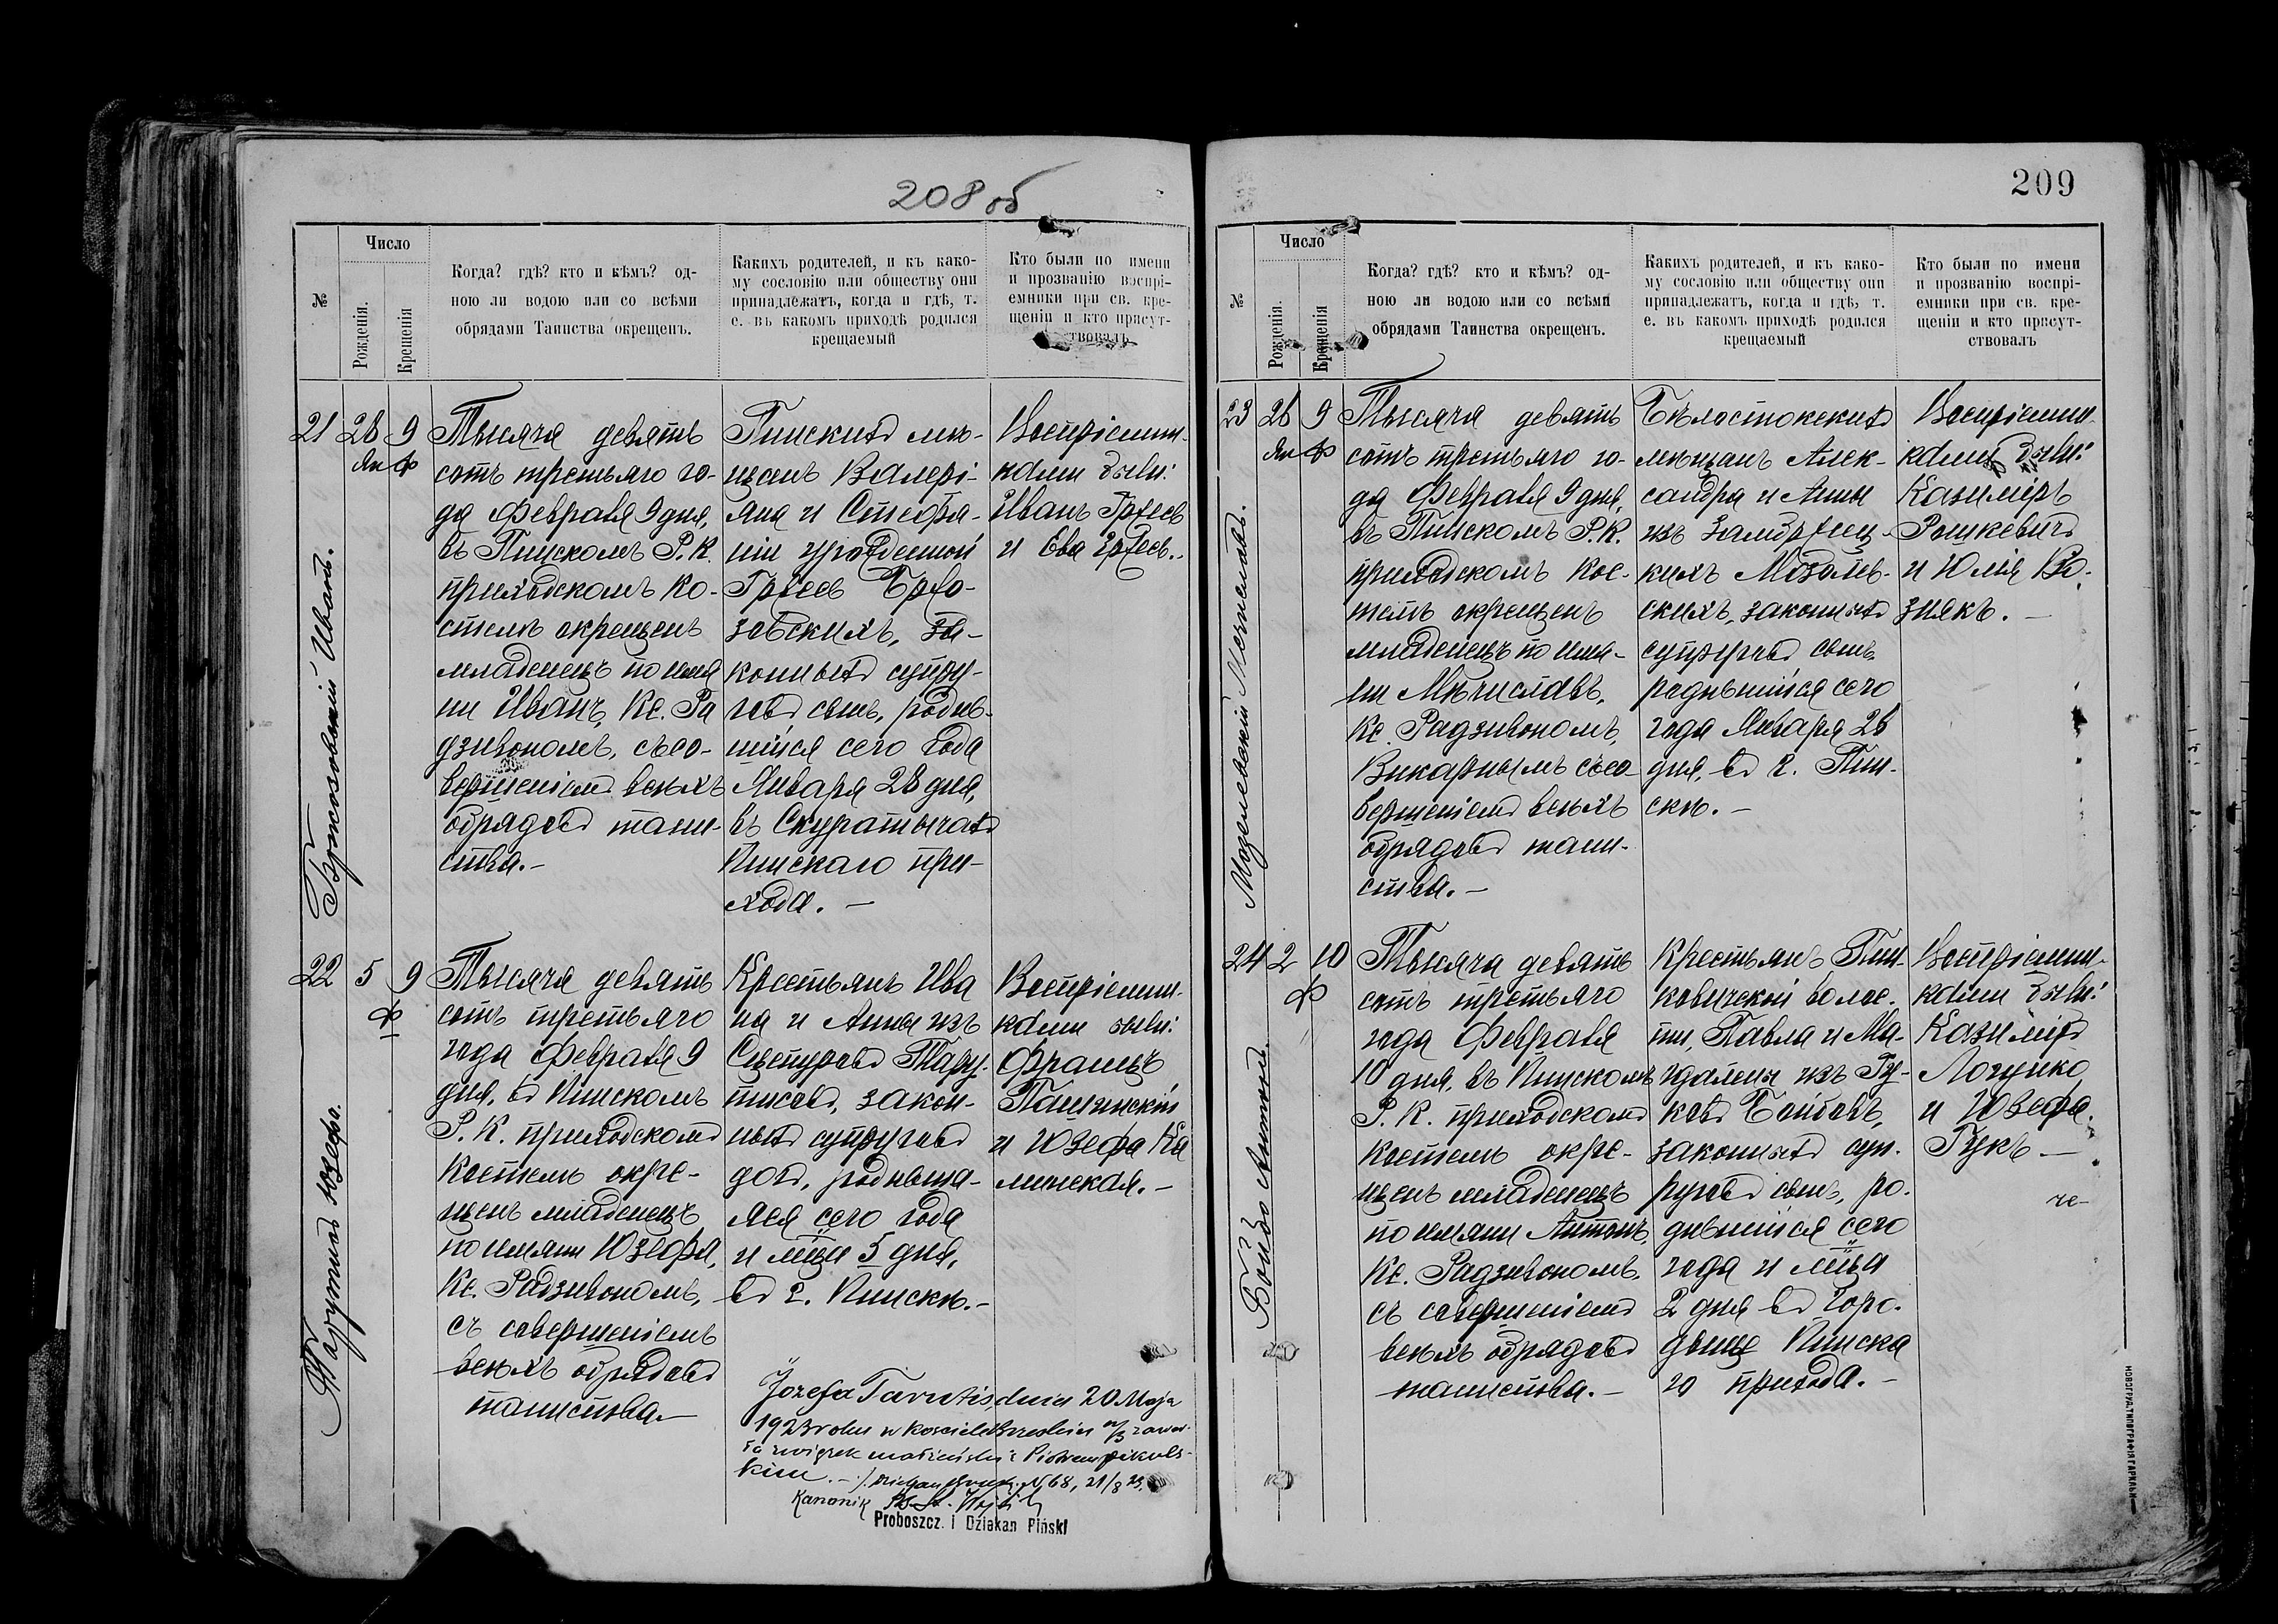 208 об
№
Число
Рожденія.
Крещенія
Когда? гдѣ? кто и кѣмъ? од-
ною ли водою или со всѣми
обрядами Таинства окрещенъ.
Какихъ родителей, и къ како-
му сословію или обществу они
принадлежатъ, когда и гдѣ, т.
е. въ какомъ приходѣ родился
крещаемый
Кто были по имени
и прозванію воспрі-
емники при св. кре-
щеніи и кто присут-
твовалъ
21
28
Ян
9
Ф
Иванъ.
Тысяча девять
сотъ третьяго го-
да Февраля 9 дня,
въ Пинскомъ Р. К.
приходскомъ ко-
стелѣ окрещенъ
младенецъ по имя
ни Иванъ, Кс. Ра
дзивономъ, съ со-
вершеніемъ всѣхъ
обрядовъ таин-
ства.-
Пинскихъ мѣ-
щанъ Валері-
яна и Стефа-
ніи урожденной
зовскихъ, за-
конныхъ супру-
говъ сынъ, родив-
шійся сего года
Января 28 дня,
въ Скуратычахъ
Пинскаго при-
хода. —
Воспріемни-
ками были:
Иванъ
и Ева
22
5
9
Ф
Тарутисъ Юзефа.
Тысяча девять
сотъ третьяго
года Февраля 9
дня, въ Пинскомъ
Р. К. приходскомъ
костелѣ окре-
щенъ младенецъ
по имяни Юзефа,
Кс. Радзивономъ,
съ совершеніемъ
всѣхъ обрядовъ
таинства.—
Крестьянъ Ива
на и Анны изъ
Тару-
тисовъ, закон-
ныхъ супруговъ
дочь, родивша-
яся сего года
и мѣсца 5 дня,
въ г. Пинскѣ.-
Воспріемни-
ками были:
Францъ
и Юзефа Ка
минская.-
Józefa Tarutis, dnia 20 Maja
1923 roku w kościele
związek małżeński z Piotrem
kim. —
№ 68, 21/8 23.
Kanonik
Proboszcz. i Dziekan Piński
209
№
Число
Рожденія.
Крещенія
Когда? гдѣ? кто и кѣмъ? од-
ною ли водою или со всѣми
обрядами Таинства окрещенъ.
Какихъ родителей, и къ како-
му сословію или обществу они
принадлежатъ, когда и гдѣ, т.
е. въ какомъ приходѣ родился
крещаемый
Кто были по имени
и прозванію воспрі-
емники при св. кре-
щеніи и кто присут-
ствовалъ
23
26
Ян
9
Ф
Мозолевскій Мечиславъ.
Тысяча девять
сотъ третьяго го-
да Февраля 9 дня,
въ Пинскомъ Р. К.
приходскомъ кос-
телѣ окрещенъ
младенецъ по имя-
ни Мѣчиславъ,
Кс. Радзивономъ,
Викарнымъ съ со-
вершеніемъ всѣхъ
обрядовъ таин-
ства. —
Бѣлостокскихъ
мѣщанъ Алек-
сандра и Анны
изъ
кихъ Мозолев-
скихъ, законныхъ
супруговъ сынъ,
родившійся сего
года Января 26
дня, въ г. Пин-
скѣ. —
Воспріемни-
ками были:
Казиміръ
Рошкевичъ
и Юлія Во-
знякъ. —
24
2
10
Ф
Бойбо Антонъ.
Тысяча девять
сотъ третьяго
года Февраля
10 дня, въ Пинскомъ
Р. К. приходскомъ
костелѣ окре-
щенъ младенецъ
по имяни Антонъ,
Кс. Радзивономъ,
съ совершеніемъ
всѣхъ обрядовъ
таинства. —
Крестьянъ Пин-
ковичской волос-
ти, Павла и Ма-
гдалены изъ Гу-
ковъ
законныхъ суп-
руговъ сынъ, ро-
дившійся сего
года и мѣсца
2 дня въ Горо-
дищѣ Пинска
го прихода. —
Воспріемни-
ками были:
Казиміръ
Логушко
и Юзефа
Гукъ —
НОВОГРУД. ТИПОГРАФІЯ ГАРКАВИ